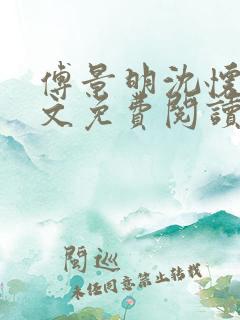 傅景明沈懷
文免費閱讀
閱巡
未经同意禁止转载